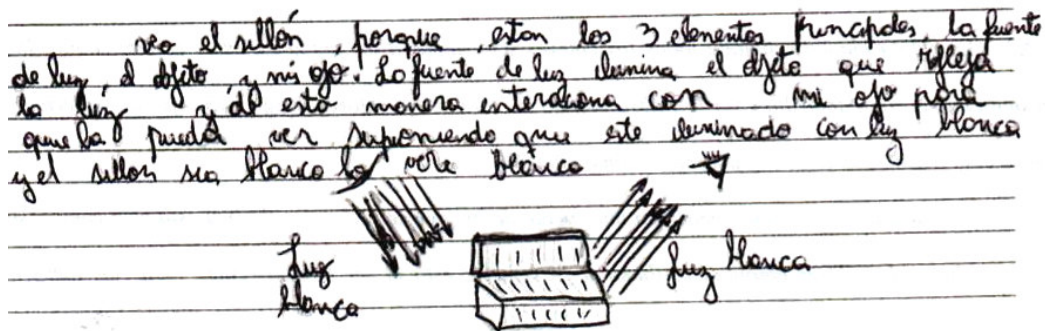 veo el sillón, porque, estan los 3 elementos principales, la fuente
de luz, el objeto y mi ojo. La fuente de luz ilumina el objeto que refleja
la luz y de esta manera interacciona con mi ojo para
que la pueda ver suponiendo que este iluminado con luz blanca
y el sillon sea blanco lo vere blanco
Luz
blanca
luz blanca